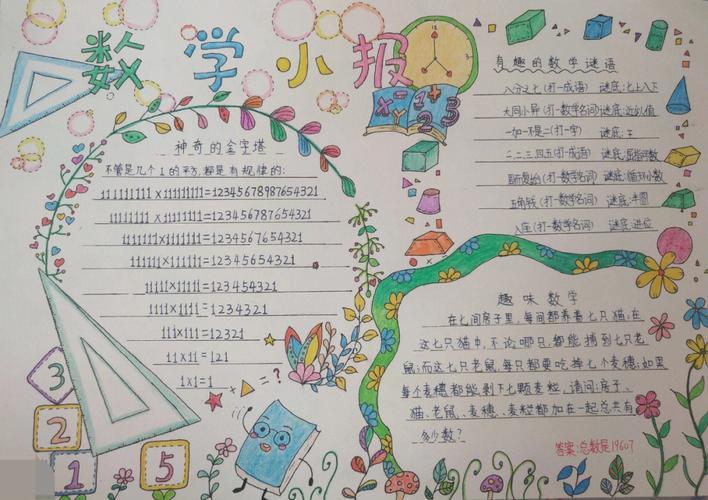 数学小报
神奇的金字塔
不管是几个1的平方,都是有规律的:
111111111×111111111=12345678987654321
11111111×11111111=123456787654321
1111111×1111111=1234567654321
111111×111111=12345654321
11111×11111=123454321
1111×1111=1234321
111×111=12321
11×11=121
1×1=1
+ = ?
3
2
1
5
有趣的数学谜语
八分之七(打一成语) 谜底:七上八下
大同小异(打一数学名词) 谜底:近似值
一加一不是二(打一字) 谜底:王
二.三.四五(打一成语) 谜底:屈指可数
周而复始(打一数学名词) 谜底:循环小数
五角钱(打一数学名词) 谜底:半圆
入座(打一数学名词) 谜底:进位
趣味数学
在七间房子里,每间都养着七只猫;在
这七只猫中,不论哪只,都能捕到七只老
鼠;而这七只老鼠,每只都要吃掉七个麦穗;如果
每个麦穗都能剥下七颗麦粒,请问:房子、
猫、老鼠、麦穗、麦粒都加在一起总共有
多少数?
答案:总数是19607